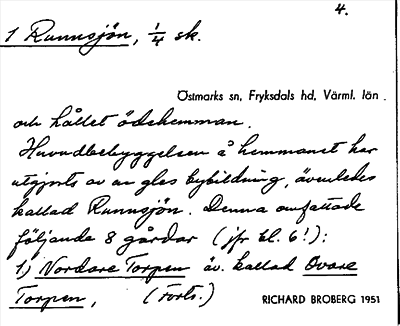 4.
1 Runnsjön, 1/4 sk.
Östmarks sn, Fryksdals hd, Värml. län.
och kallet ödehemman.
Huvudbebyggelsen å hemmanet har
utgjorts av en gles bybildning, ävenledes
kallad Runnsjön. Denna omfattade
följande 8 gårdar (jfr bl. 6!):
1) Nordare Torpen äv. kallad Ovare
Torpen, (Forts.)
RICHARD BROBERG 1951